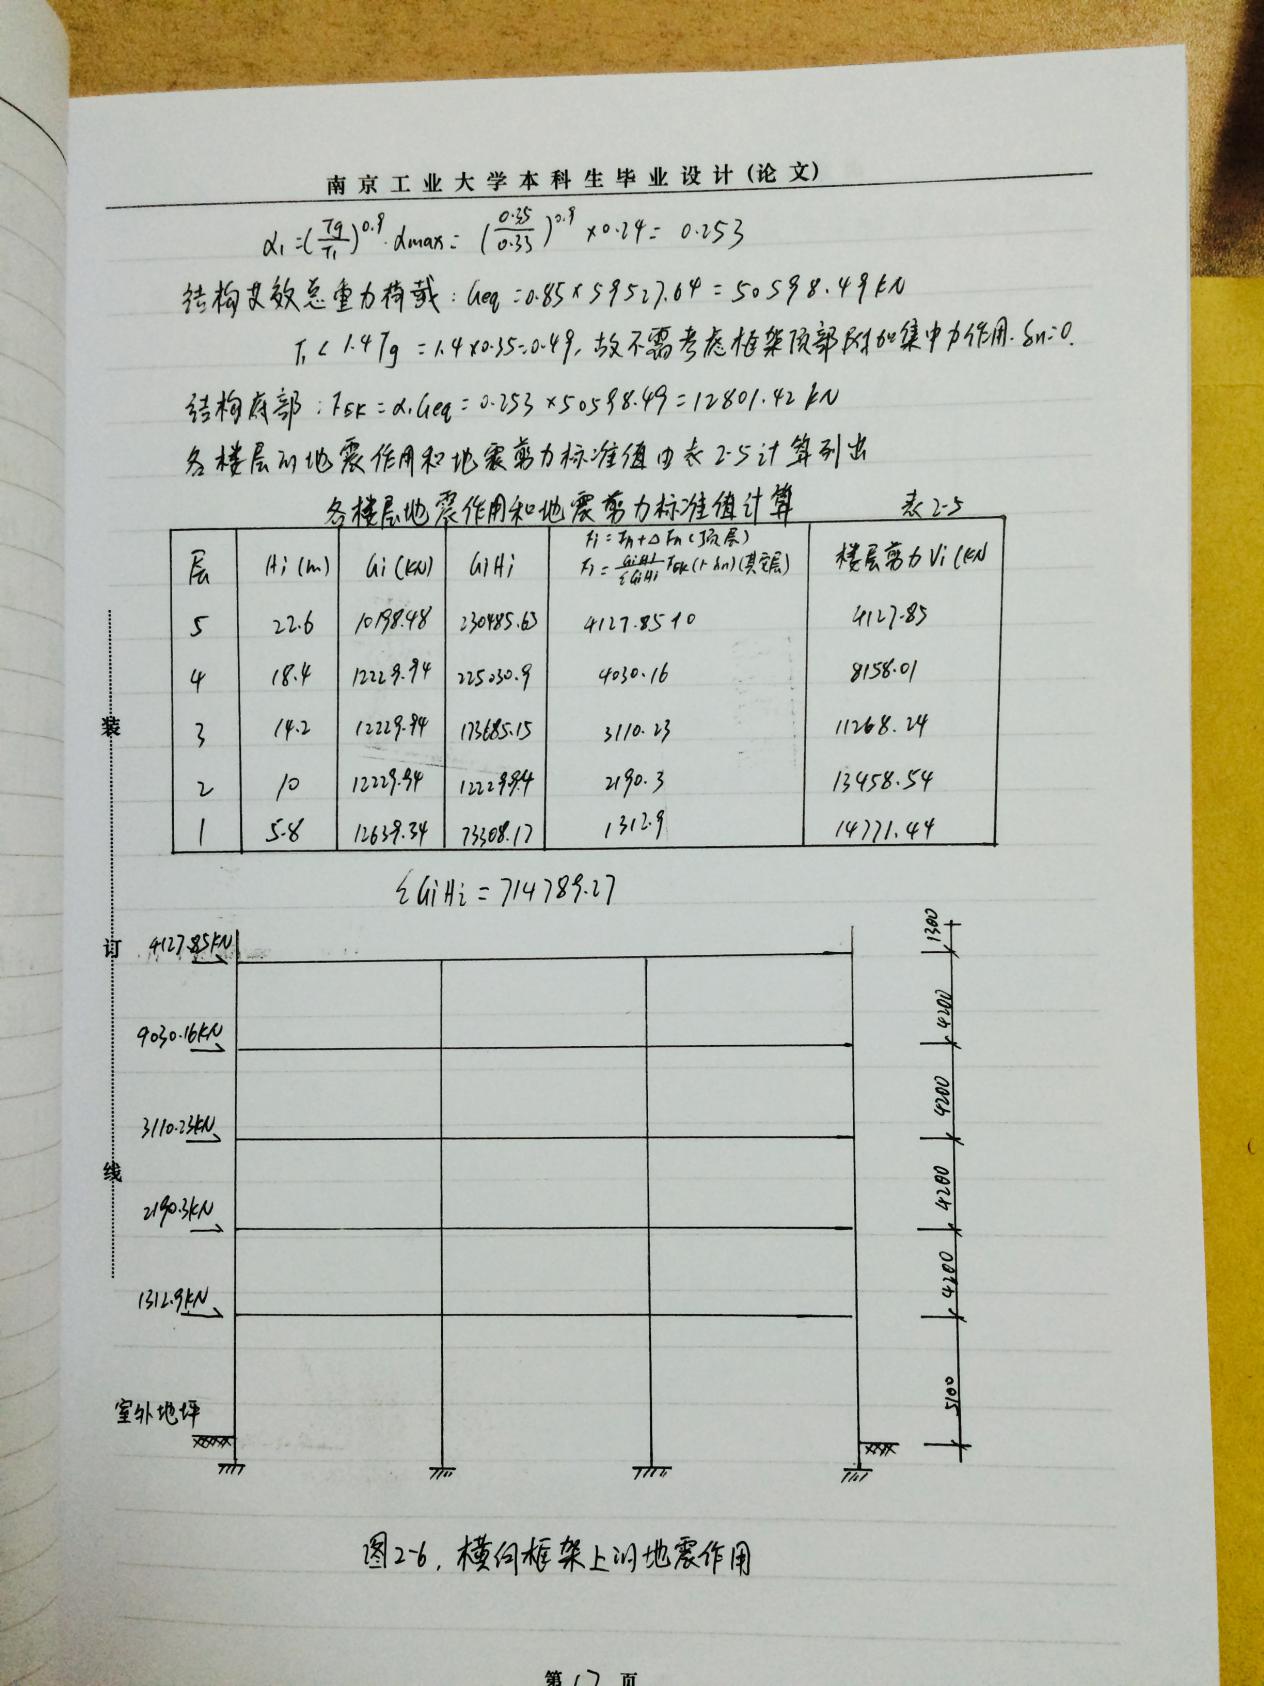 南京工业大学本科生毕业设计(论文)
α₁=(Tg/T₁)^0.9·αmax=(0.35/0.33)^0.9×0.24=0.253
结构等效总重力荷载:Geq=0.85×59527.64=50598.49KN
T₁<1.4Tg=1.4×0.35=0.49,故不需考虑框架顶部附加集中力作用.δn=0.
结构底部:FEK=α₁Geq=0.253×50598.49=12801.42KN
各楼层的地震作用和地震剪力标准值由表2-5计算列出
各楼层地震作用和地震剪力标准值计算 表2-5
层 Hi(m) Gi(KN) GiHi Fi=Fn+ΔFn(顶层) Fi=GiHi/ΣGiHi FEK(1-δn)(其它层) 楼层剪力Vi(KN
5 22.6 10198.48 230485.63 4127.85+0 4127.85
4 18.4 12229.94 225030.9 4030.16 8158.01
3 14.2 12229.94 173665.15 3110.23 11268.24
2 10 12229.94 122299.4 2190.3 13458.54
1 5.8 12639.34 73308.17 1312.9 14771.44
ΣGiHi=714789.27
装
订
线
4127.85KN
9030.16KN
3110.23KN
2190.3KN
1312.9KN
室外地坪
1300
4200
4200
4200
4200
5100
图2-6.横向框架上的地震作用
第17页